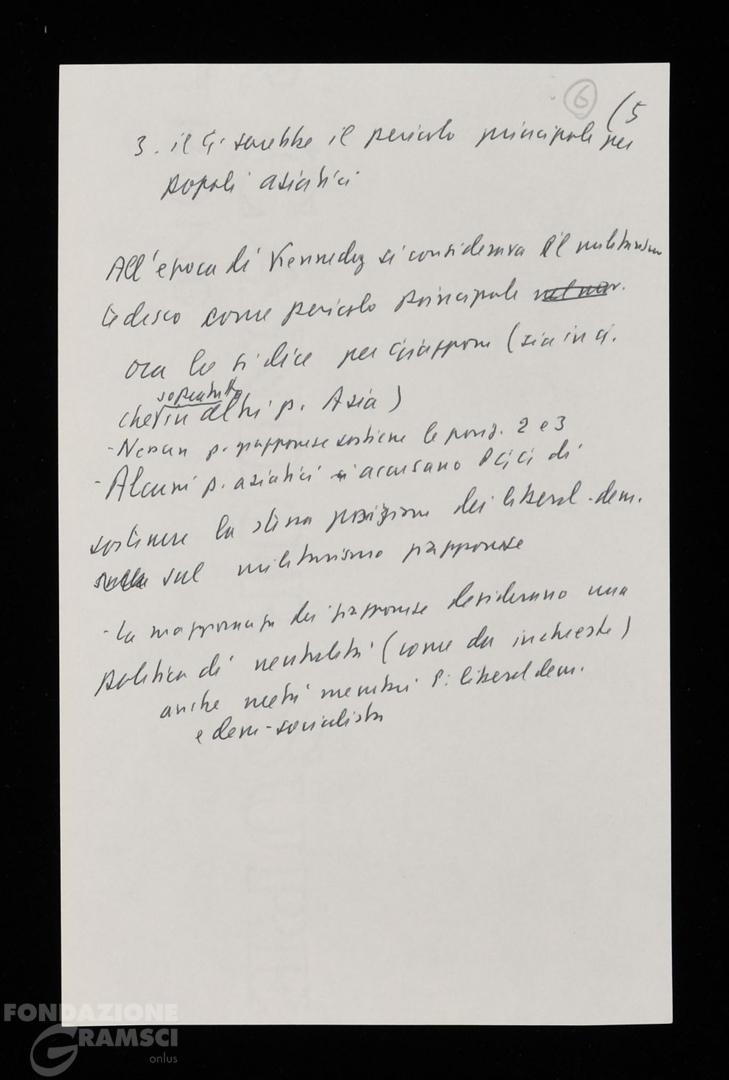 6
(5
3. il G. sarebbe il pericolo principale per
popoli asiatici
All'epoca di Kennedy si considerava il militarismo
tedesco come pericolo principale
ora lo si dice per Giappone (sia in G.
soprattutto
che in altri p. Asia)
- Nessun p. giapponese sostiene le posiz. 2 e 3
- Alcuni p. asiatici accusano PCG di
sostenere la stessa posizione dei liberal-dem.
sul militarismo giapponese
- La maggioranza dei giapponesi desiderano una
politica di neutralità (come da inchieste)
anche metà membri P. liberal dem.
e dem-socialista
FONDAZIONE
GRAMSCI
onlus